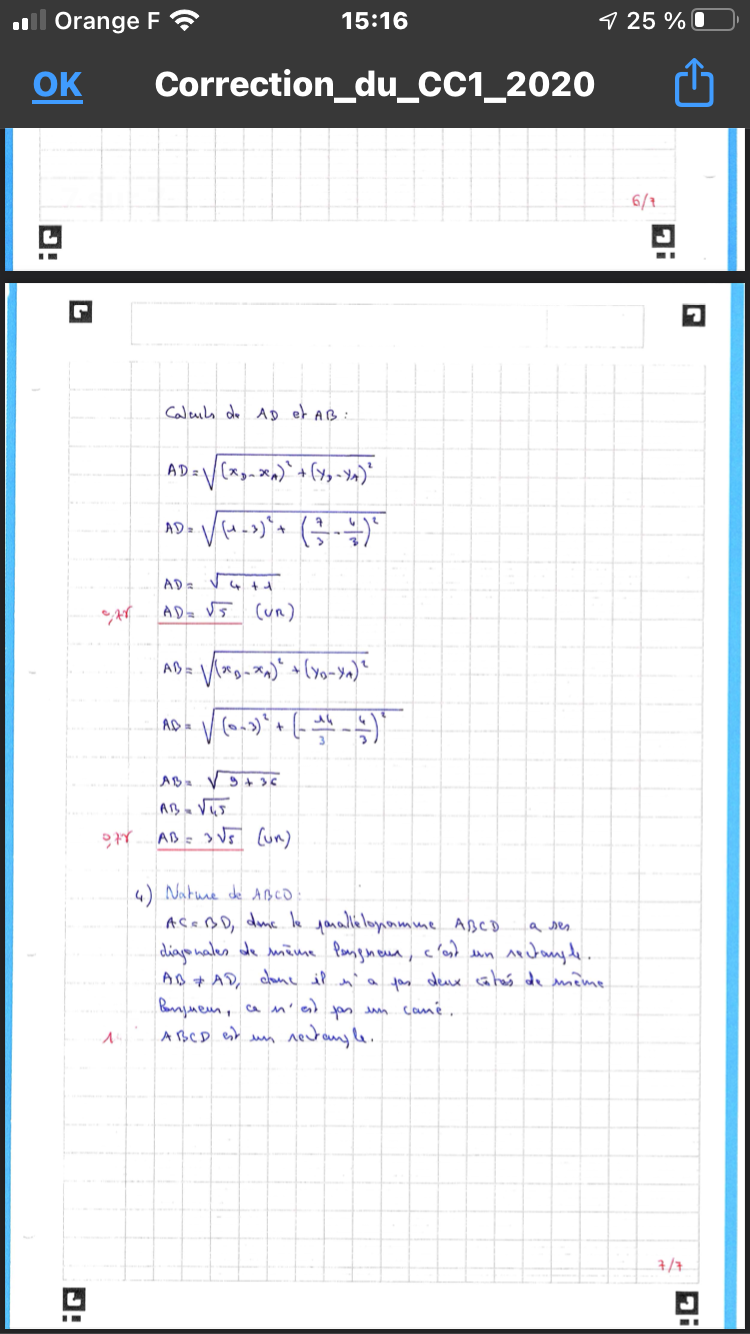 Orange F 15:16 25 %
OK Correction_du_CC1_2020
6/7
Calculs de AD et AB :
AD = √((x_D - x_A)² + (y_D - y_A)²)
AD = √((1 - 3)² + (7/3 - 4/3)²)
AD = √(4 + 1)
0,75 AD = √5 (UR)
AB = √((x_B - x_A)² + (y_B - y_A)²)
AB = √((0 - 3)² + (-14/3 - 4/3)²)
AB = √(9 + 36)
AB = √45
0,75 AB = 3√5 (UR)
4) Nature de ABCD :
AC = BD, donc le parallélogramme ABCD a ses
diagonales de même longueur, c'est un rectangle.
AB ≠ AD, donc il n'a pas deux côtés de même
longueur, ce n'est pas un carré.
1 ABCD est un rectangle.
7/7